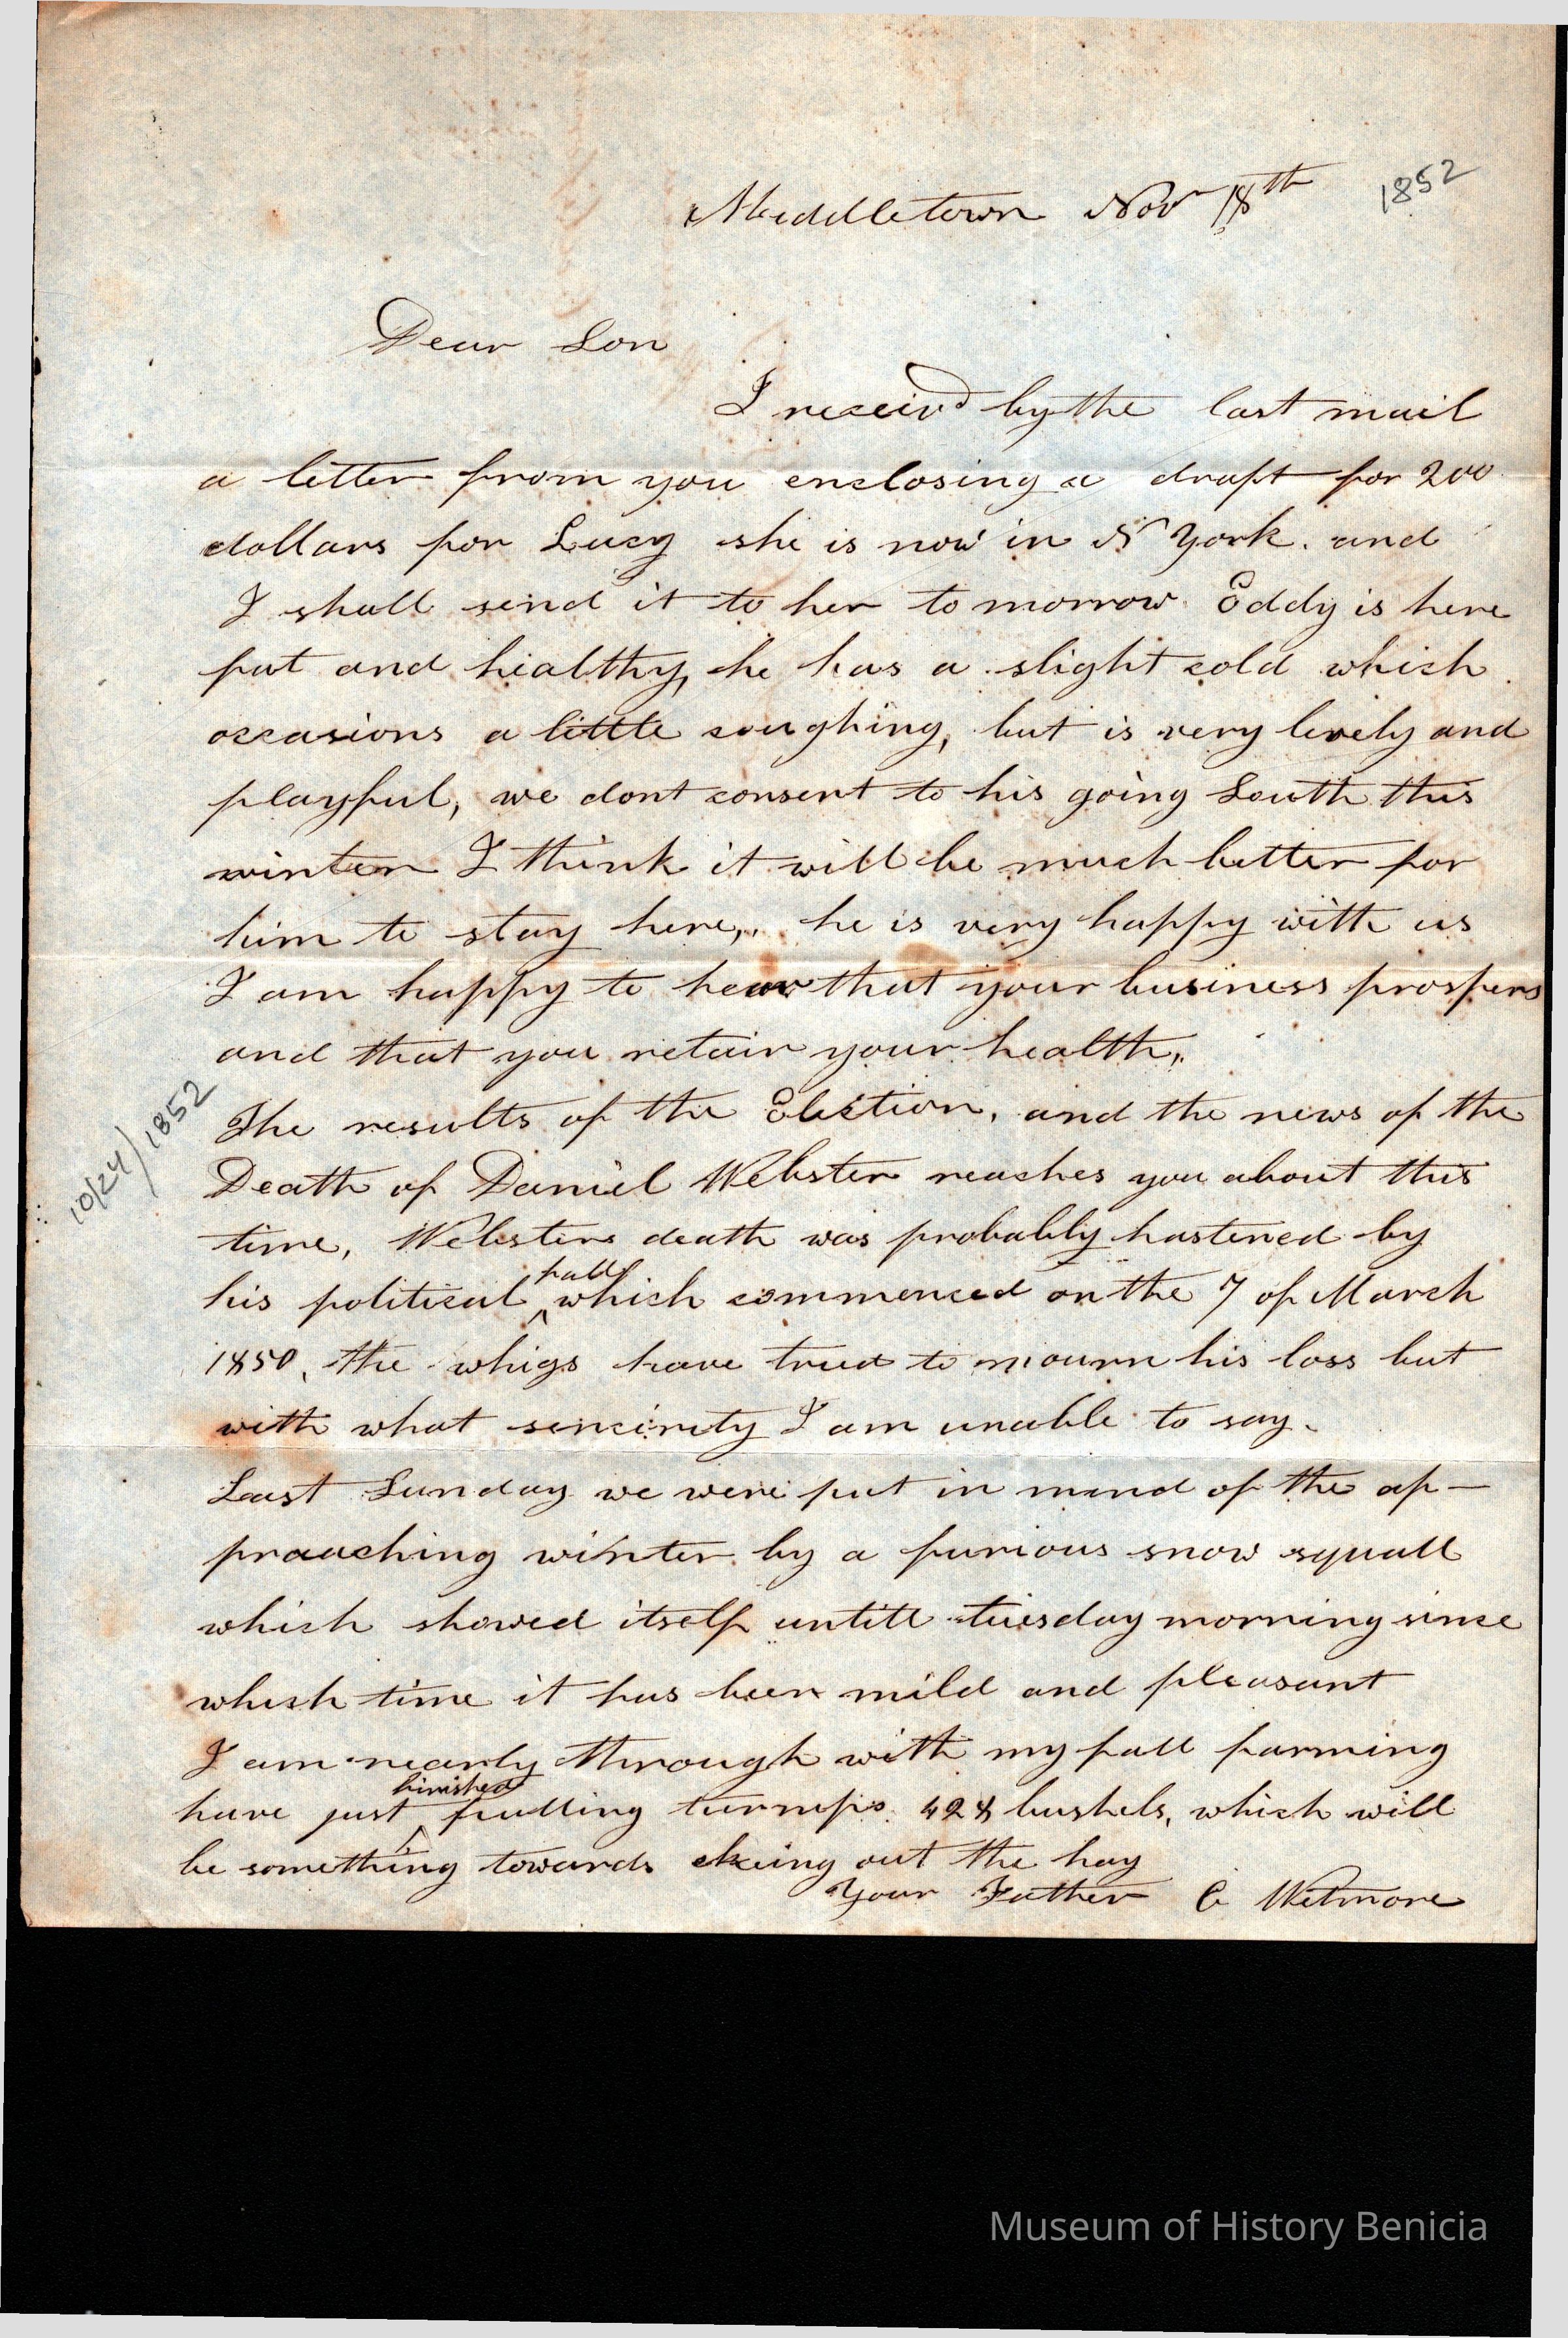 Middletown Nov 18th 1852
Dear Son
I receivd by the last mail
a letter from you enclosing a draft for 200
dollars for Lucy she is now in N York. and
I shall send it to her to morrow. Eddy is here
fat and healthy, he has a slight cold which
occasions a little coughing, but is very lively and
playful, we dont consent to his going South this
winter I think it will be much better for
him to stay here,. he is very happy with us
I am happy to hear that your business prospers
and that you retain your health,.
The results of the Election, and the news of the
10/24/1852
Death of Daniel Webster reaches you about this
time, Websters death was probably hastened by
his political ^fall which commenced on the 7 of March
1850, the whigs have tried to mourn his loss but
with what sincirity I am unable to say.
Last Sunday we were put in mind of the ap-
proaching winter by a furious snow squall
which showed itself untill tuesday morning since
which time it has been mild and pleasant
I am nearly through with my fall farming
have just ^finished pulling turnips 428 bushels, which will
be something towards ekeing out the hay
Your Father C Wetmore
Museum of History Benicia